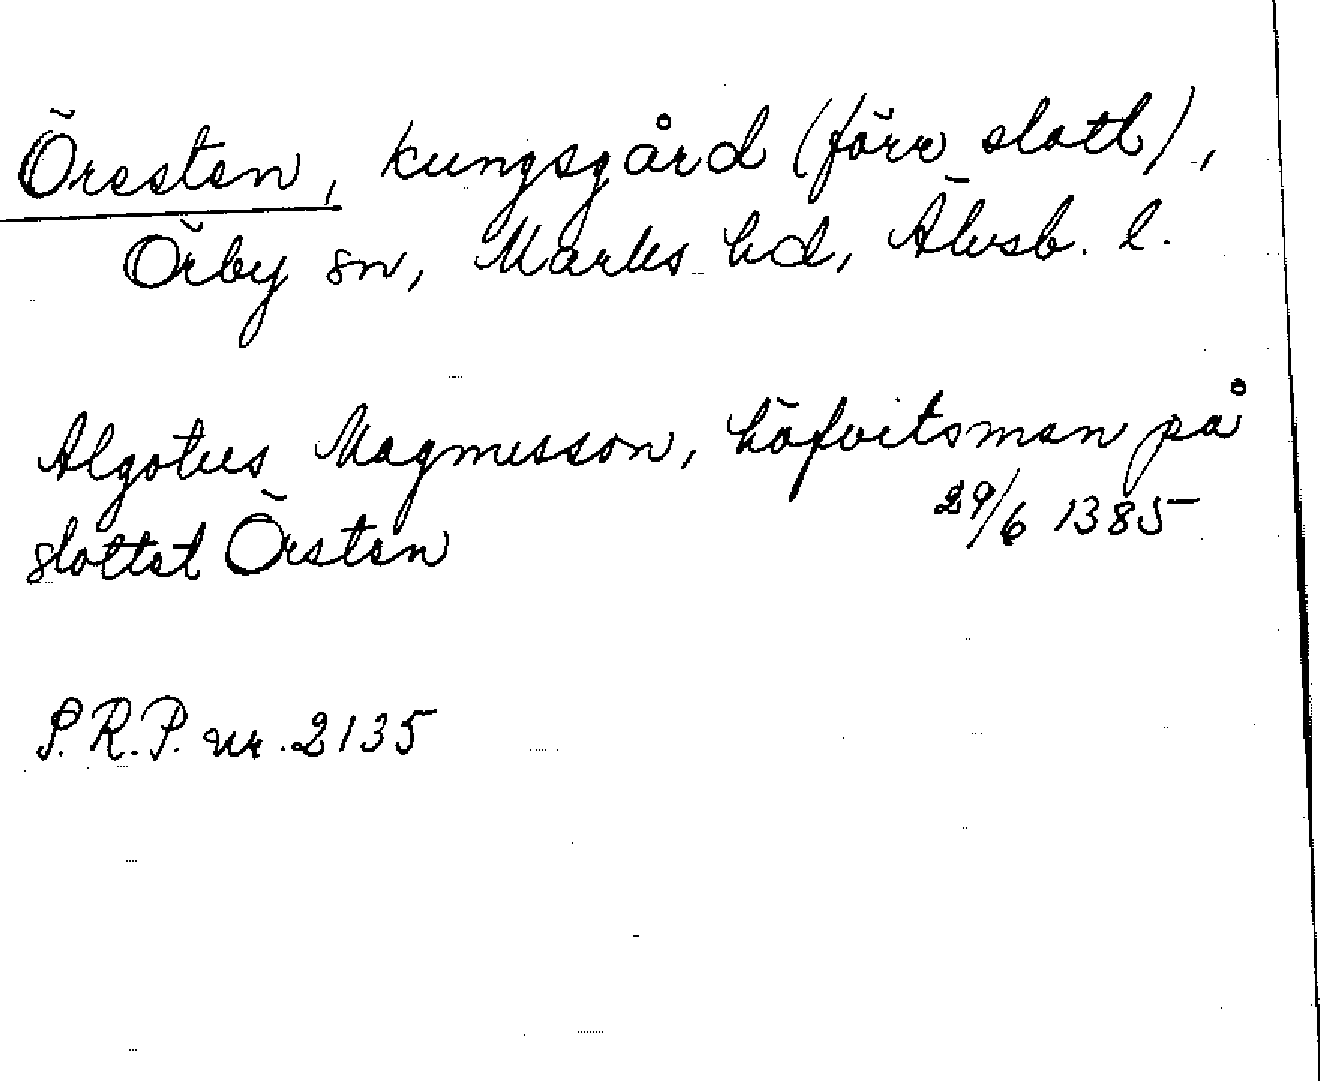 Öresten, kungsgård (förr slott),
Örby sn, Marks hd, Älvsb. l.
Algotus Magnusson, höfvitsman på
slottet Örsten 29/6 1385
S.R.P. nr. 2135